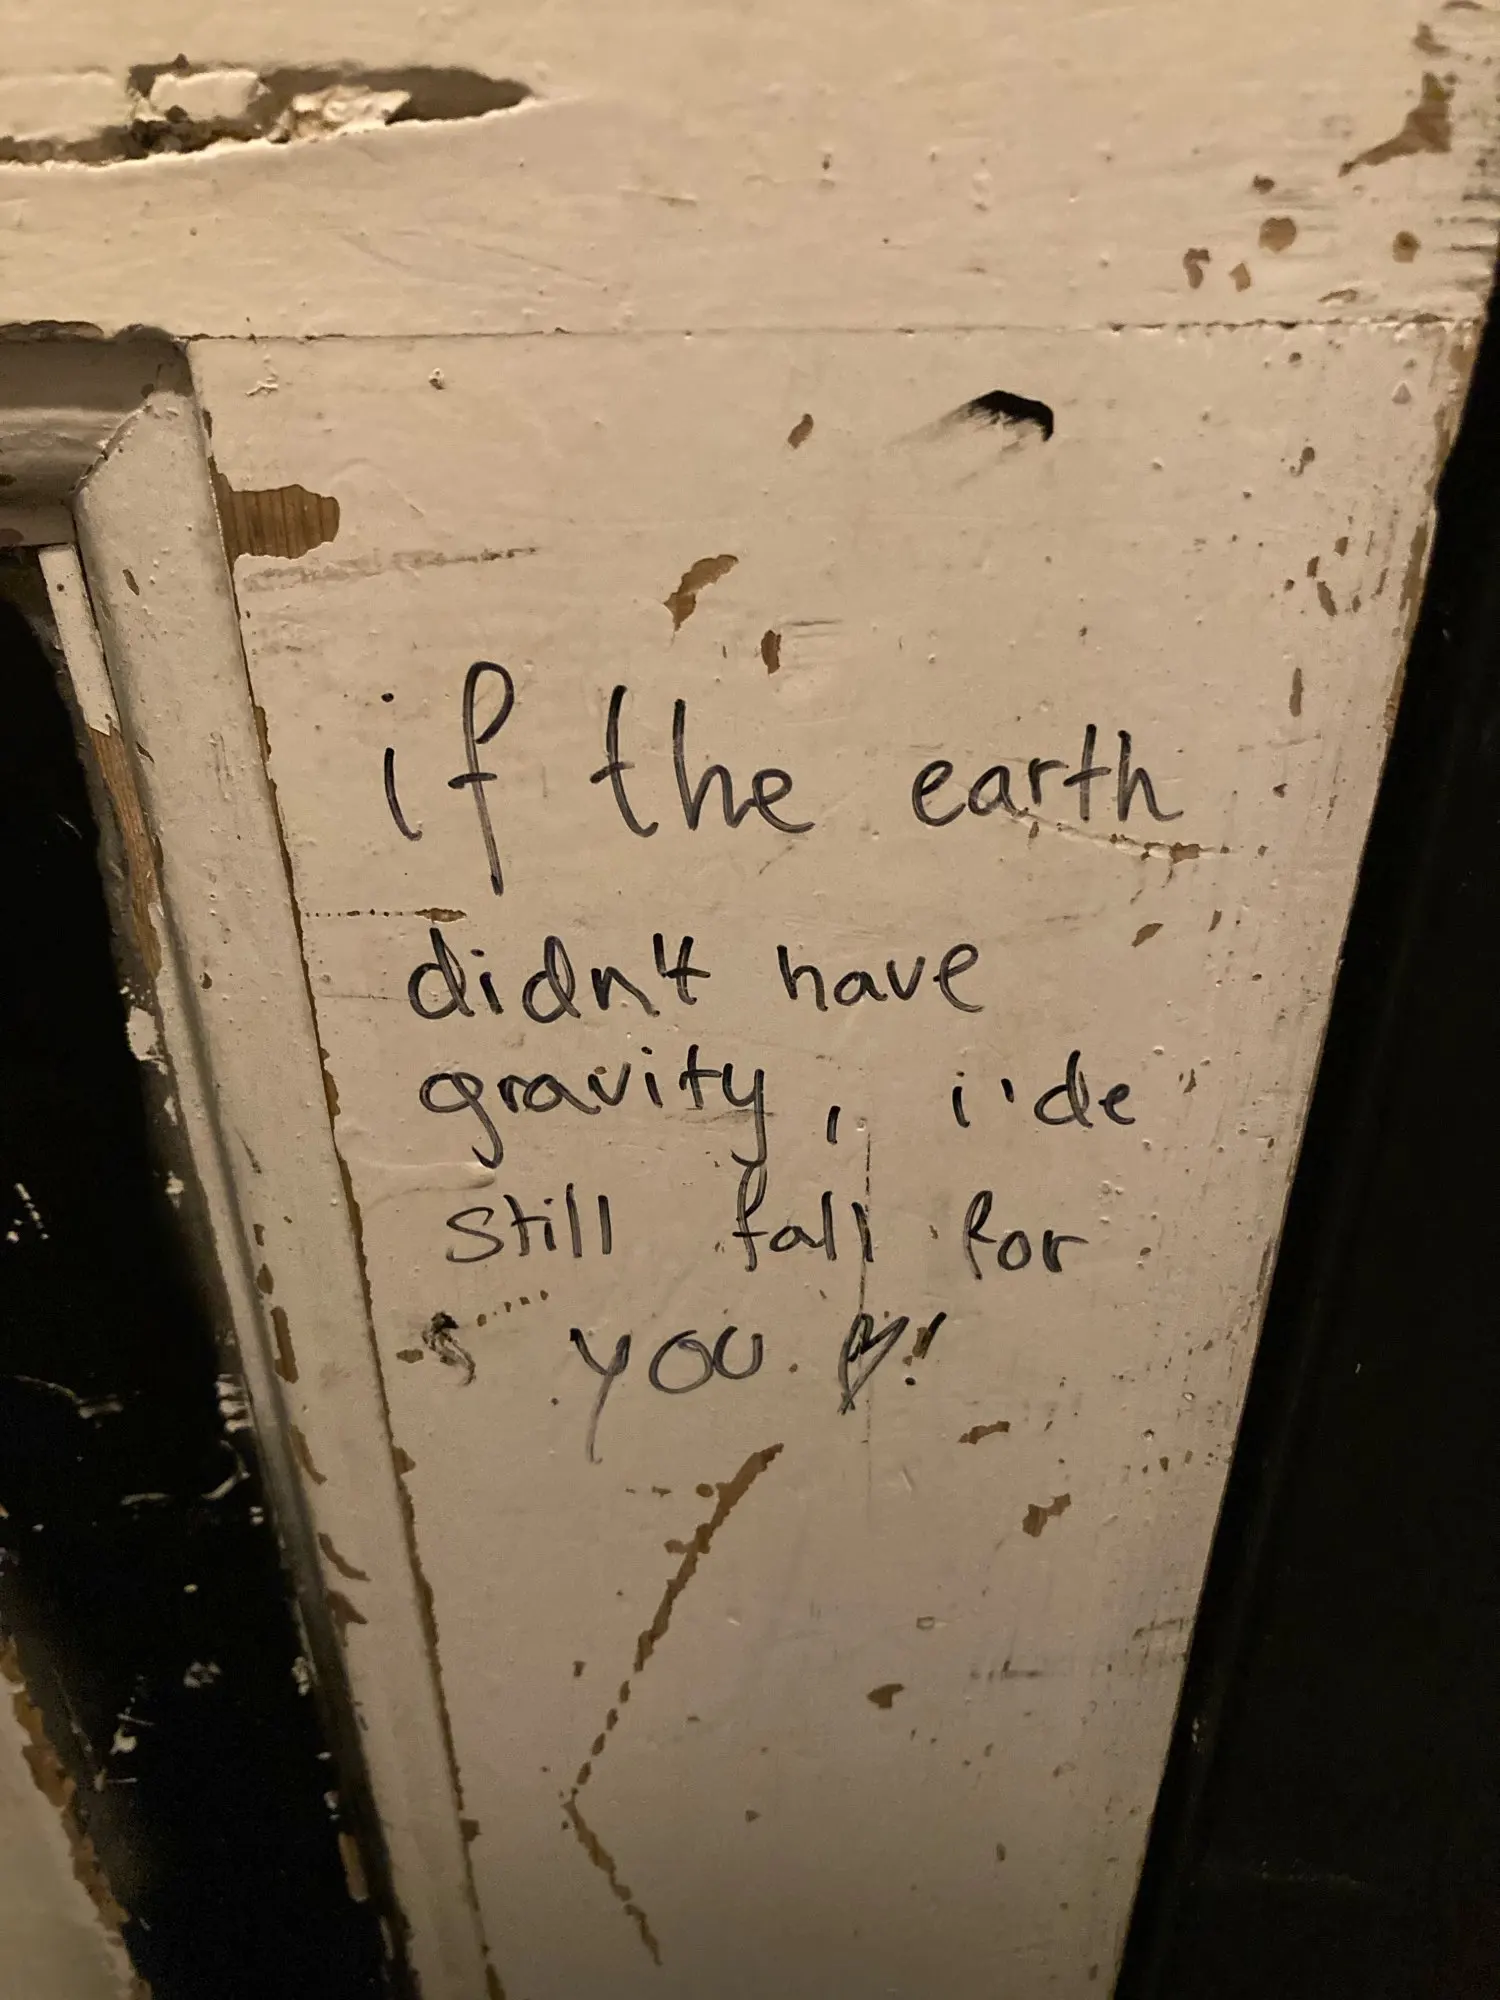 if the earth
didn't have
gravity, i'de
still fall for
you ♡!